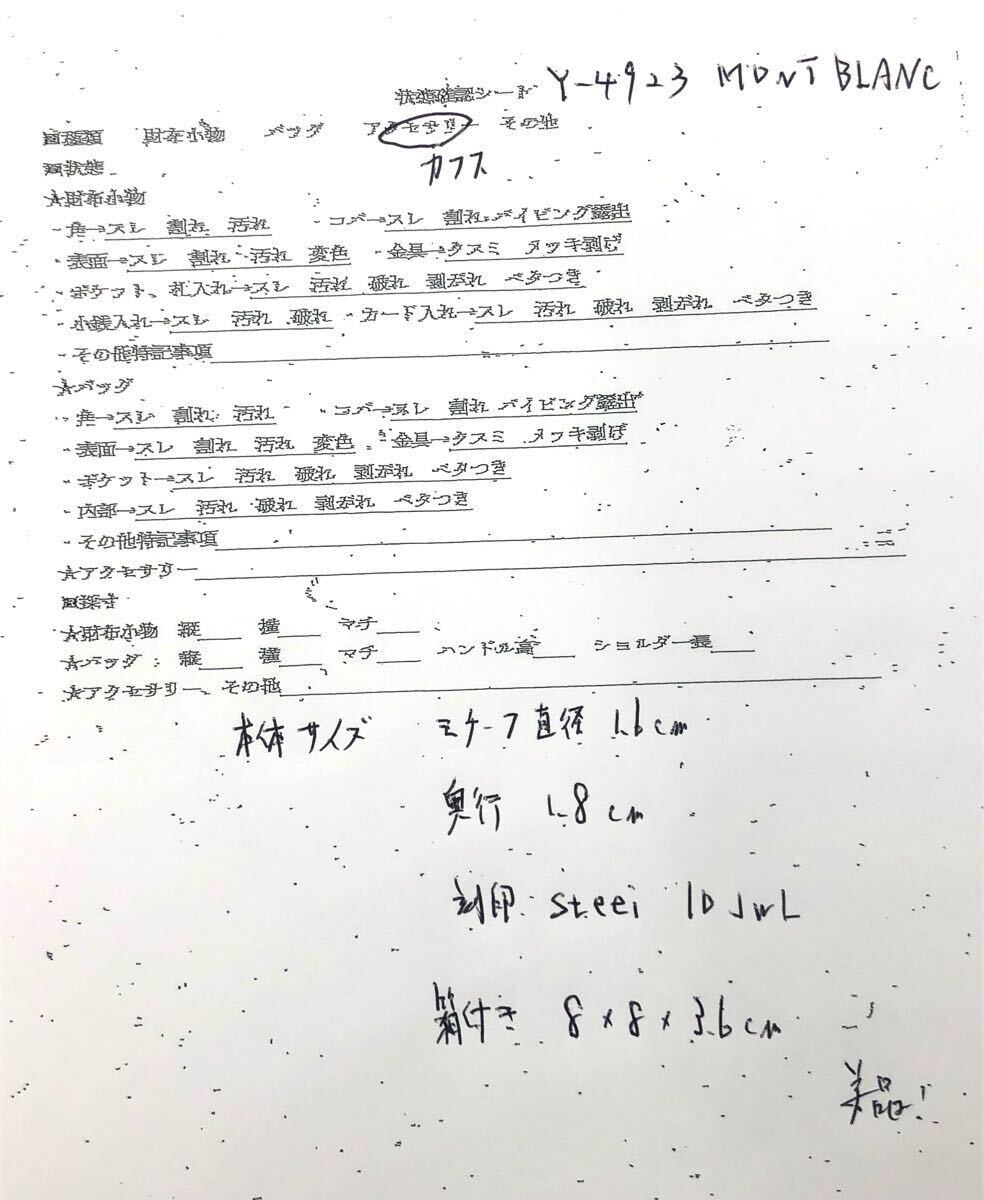 状態確認シート Y-4923 MONT BLANC
種類 財布小物 バッグ アクセサリー その他
カフス
状態
★財布小物
・角→スレ 割れ 汚れ ・コバ→スレ 割れ パイピング露出
・表面→スレ 割れ 汚れ 変色 ・金具→クスミ メッキ剥げ
・ポケット、札入れ→スレ 汚れ 破れ 剥がれ ベタつき
・小銭入れ→スレ 汚れ 破れ ・カード入れ→スレ 汚れ 破れ 剥がれ ベタつき
・その他特記事項
★バッグ
・角→スレ 割れ 汚れ ・コバ→スレ 割れ パイピング露出
・表面→スレ 割れ 汚れ 変色 ・金具→クスミ メッキ剥げ
・ポケット→スレ 汚れ 破れ 剥がれ ベタつき
・内部→スレ 汚れ 破れ 剥がれ ベタつき
・その他特記事項
★アクセサリー
採寸
★財布小物 縦 横 マチ
★バッグ: 縦 横 マチ ハンドル高 ショルダー長
★アクセサリー、その他
本体サイズ モチーフ直径 1.6cm
奥行 1.8cm
刻印 steei 1D JWL
箱付き 8×8×3.6cm
美品!